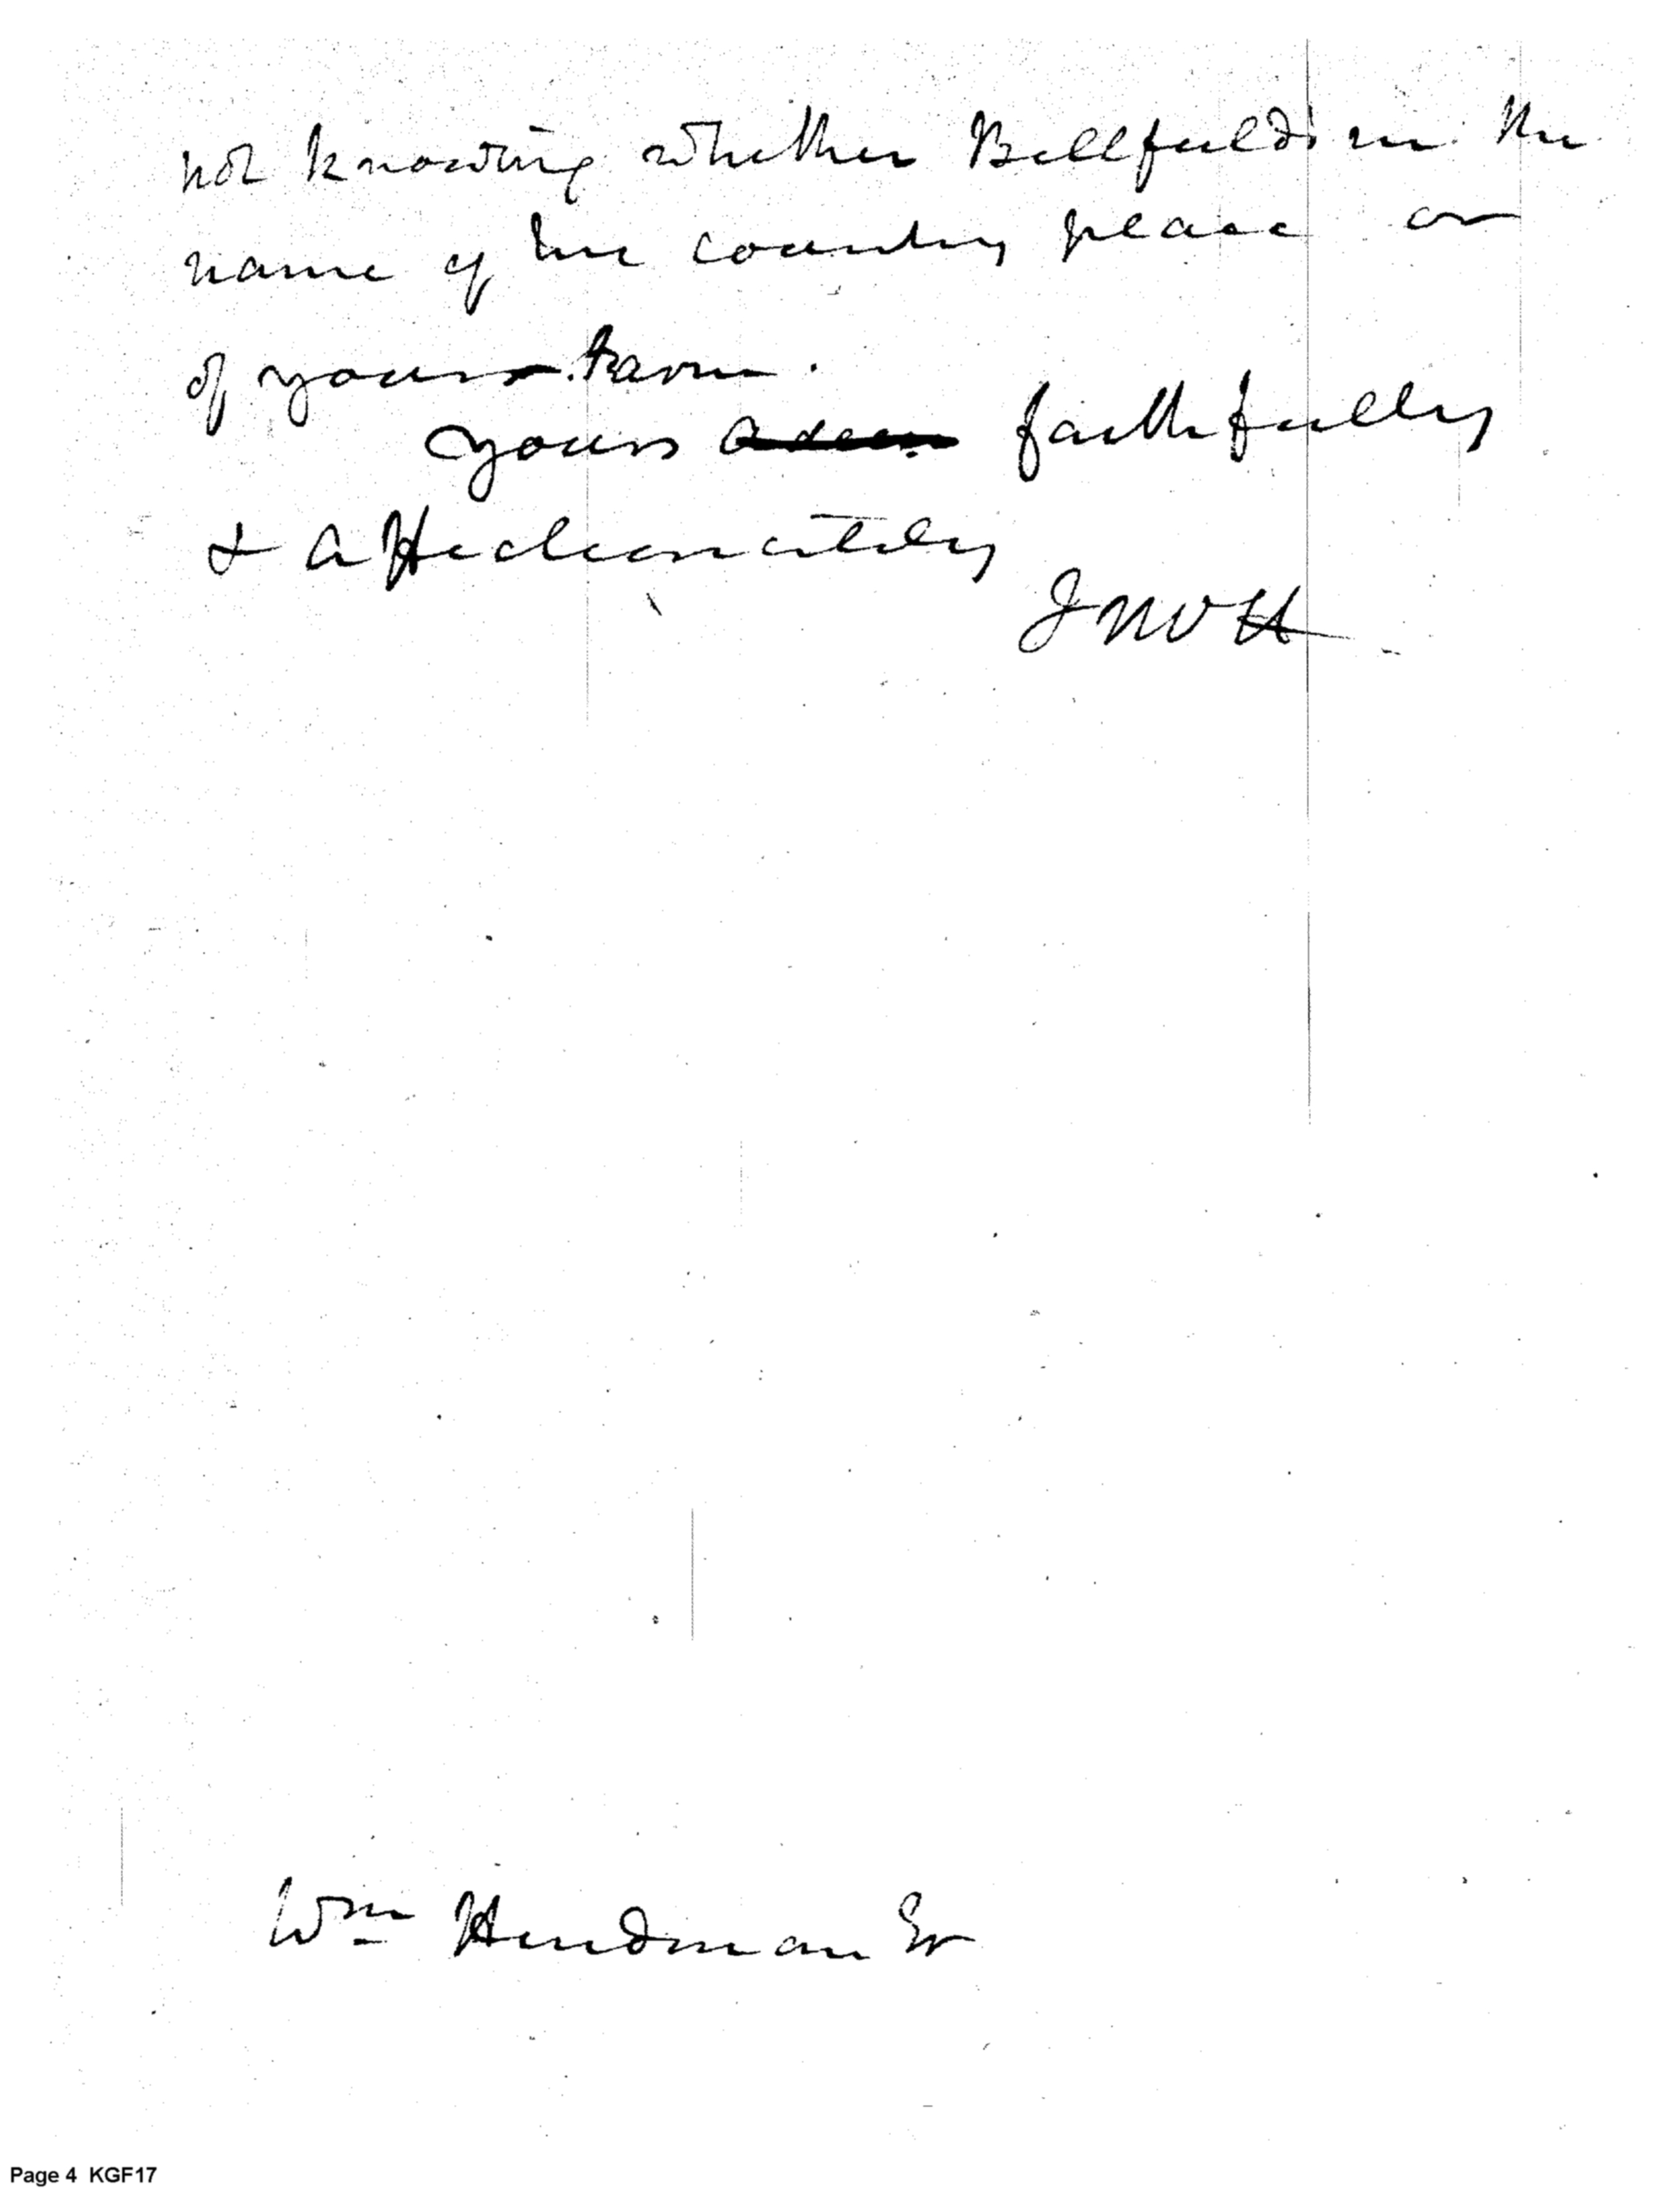 not knowing whether Bellfield is the
name of the country place or
of your farm.
yours faithfully
& affectionately
JMVH
Wm Hindman Esr
Page 4 KGF17